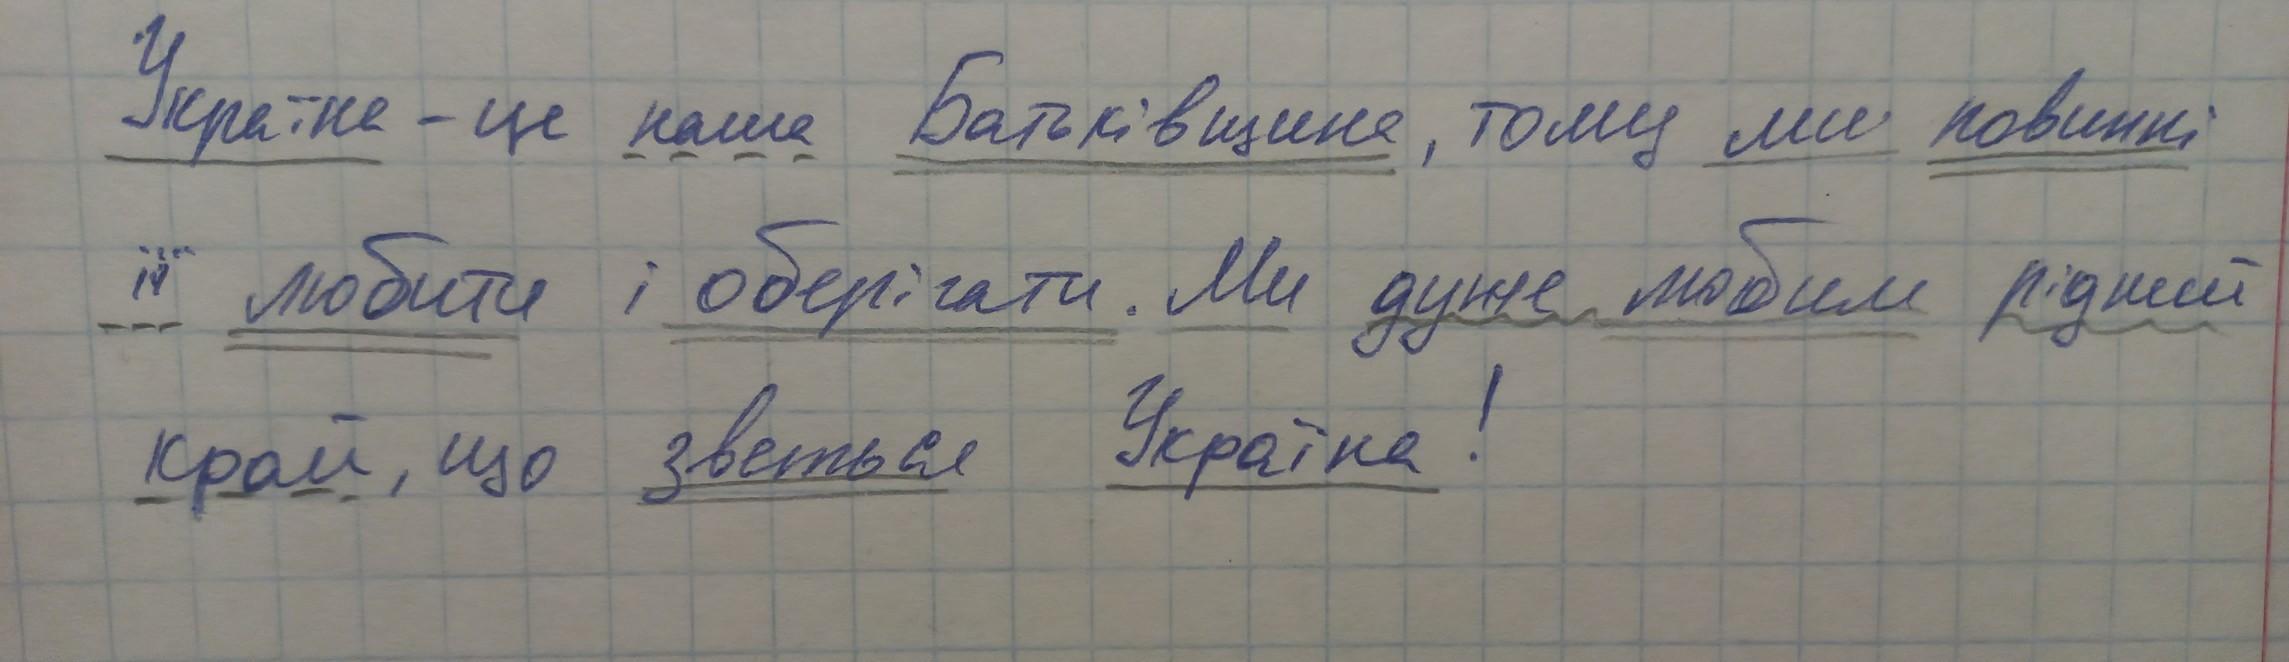 Україна - це наша Батьківщина, тому ми повинні
її любити і оберігати. Ми дуже любим рідний
край, що зветься Україна!